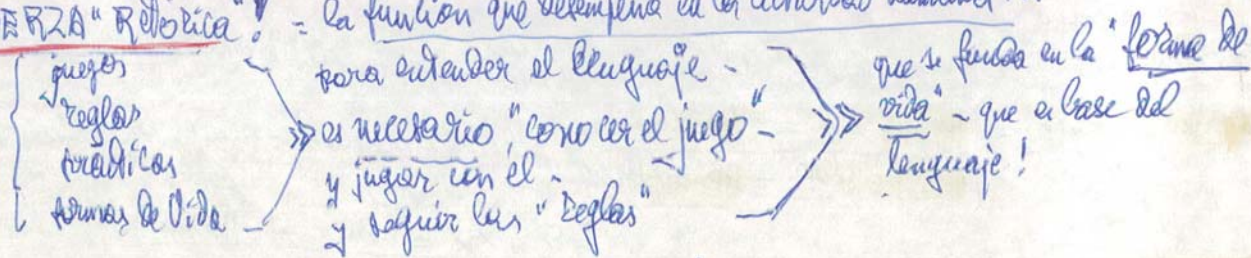 ERZA "Retórica"! = la función que desempeña en la
juegos
reglas
prácticas
formas de Vida
para entender el lenguaje -
es necesario, "conocer el juego" -
y jugar con él -
y seguir las "reglas"
que se funda en la "forma de
vida" - que es base del
lenguaje!